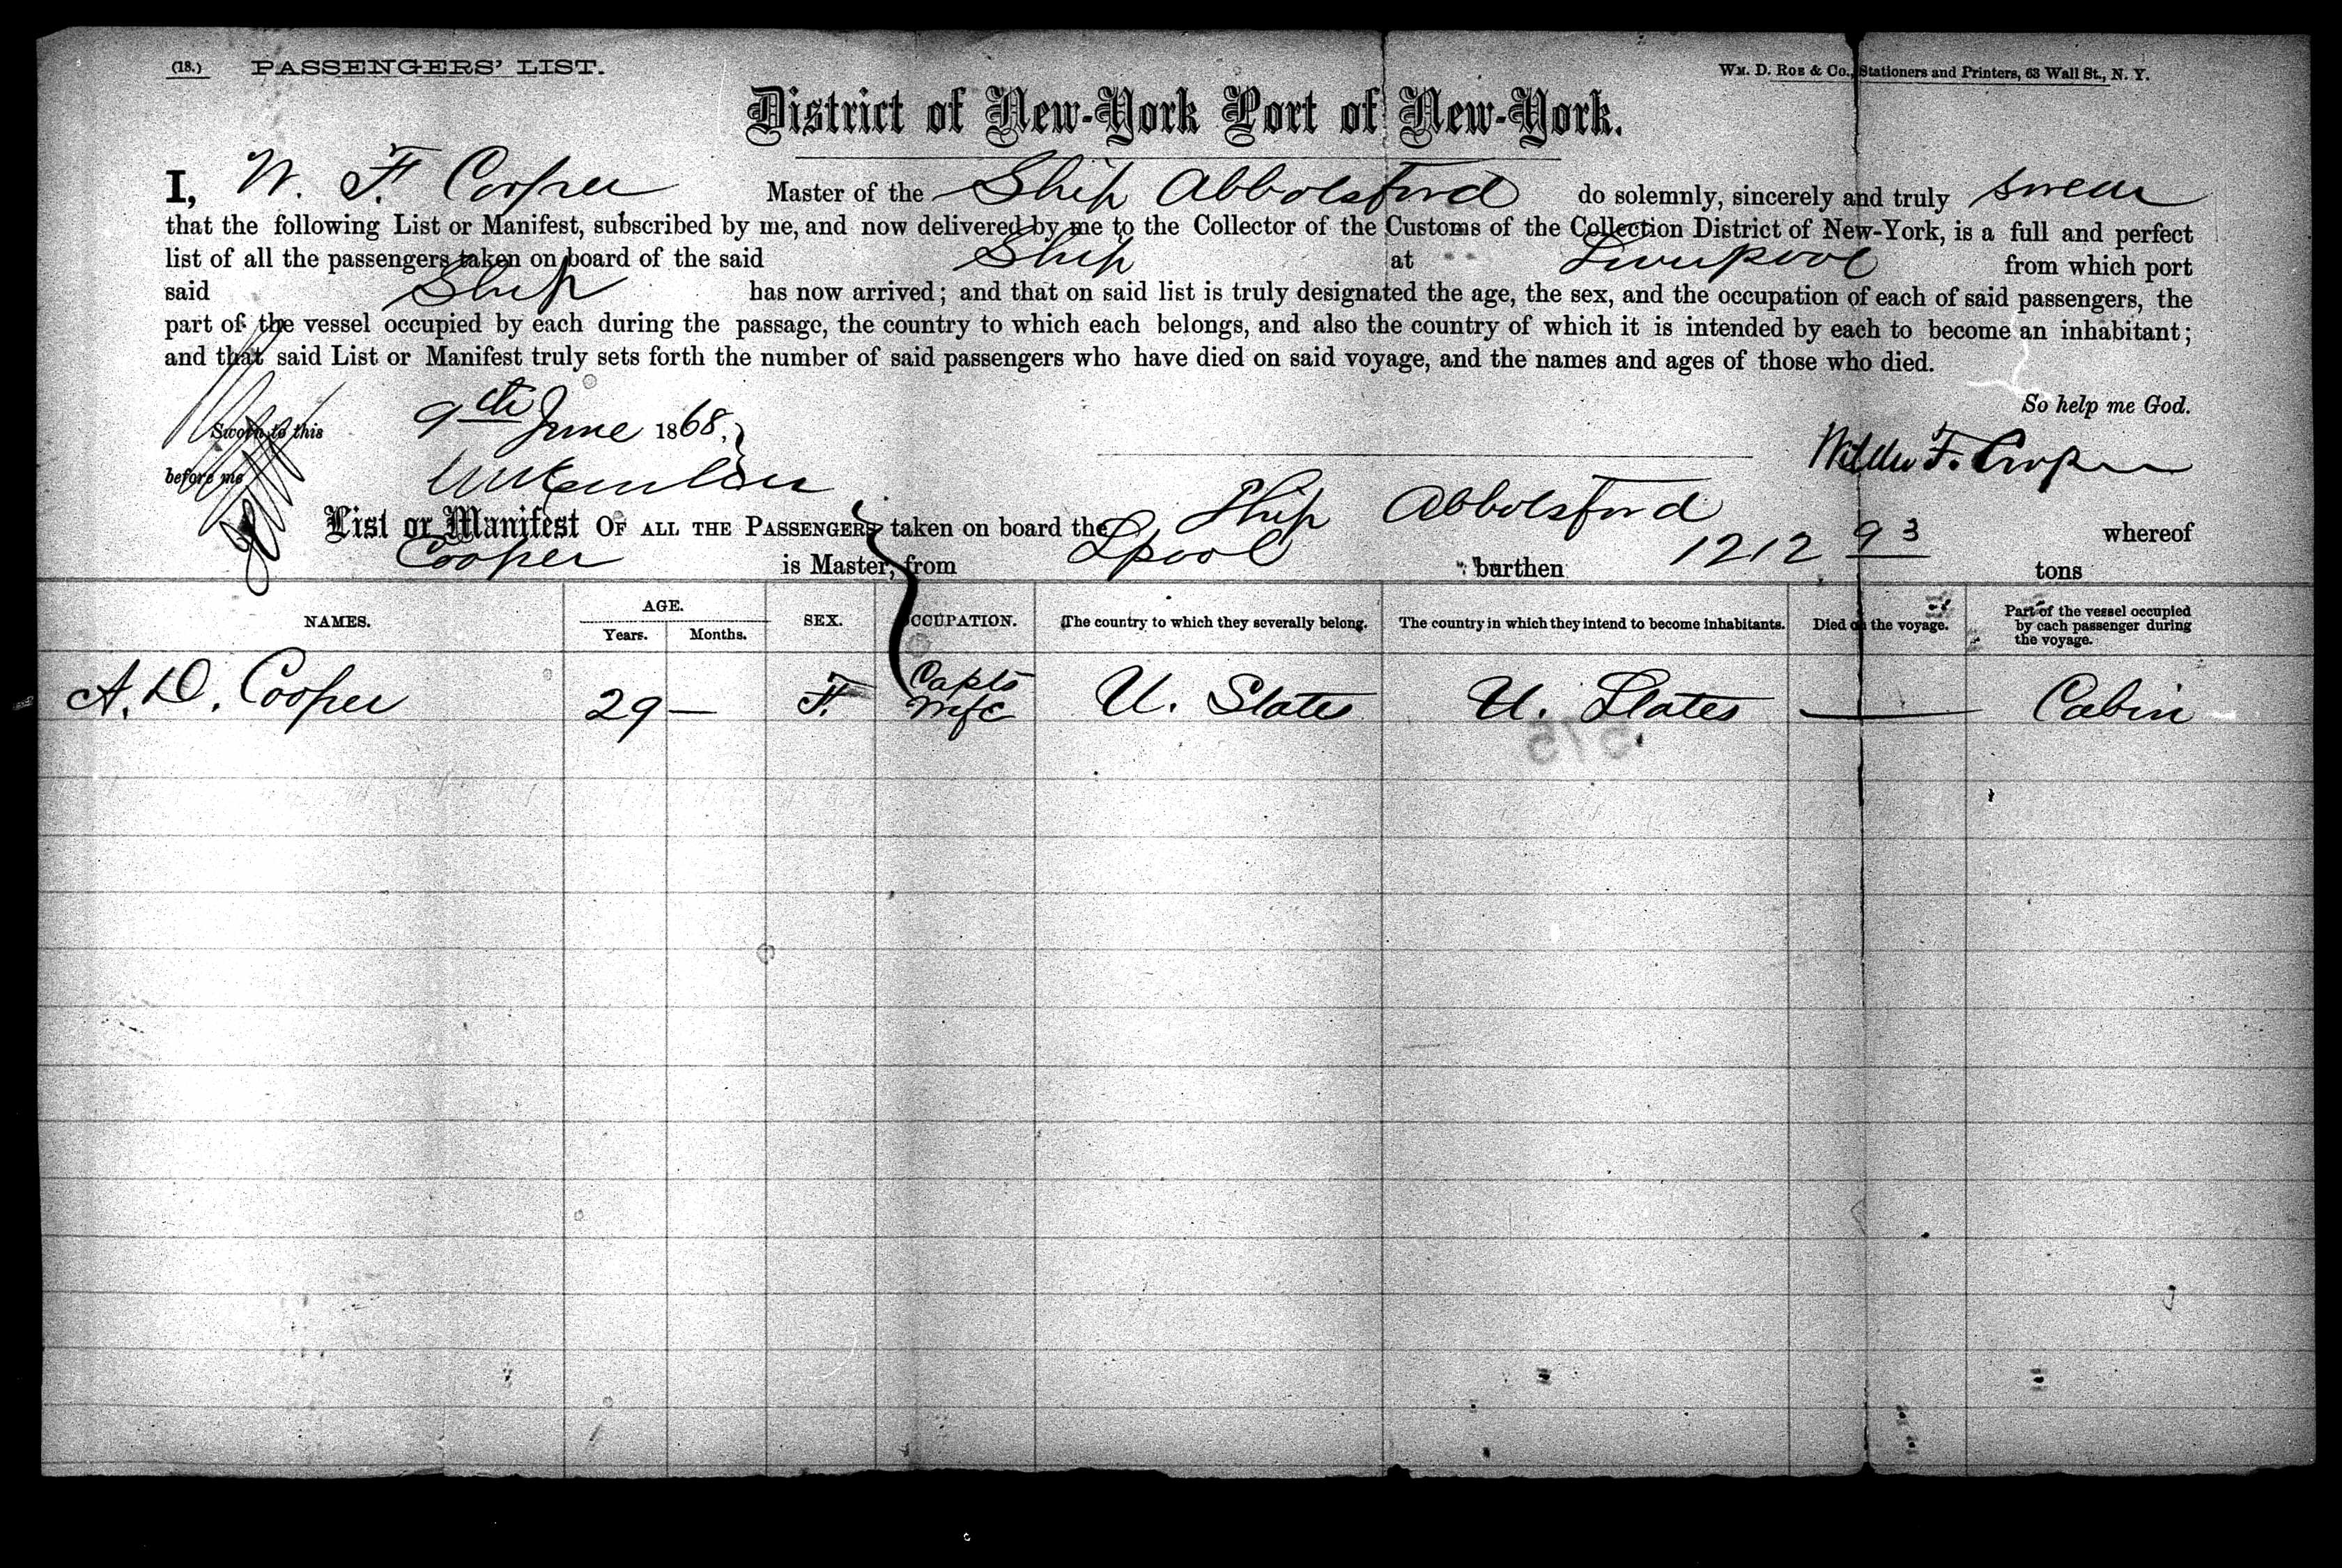 (18.) PASSENGERS' LIST. WM. D. ROE & Co., Stationers and Printers, 63 Wall St., N. Y.
District of New-York Port of New-York.
I, W. F. Cooper Master of the Ship Abbotsford do solemnly, sincerely and truly swear
that the following List or Manifest, subscribed by me, and now delivered by me to the Collector of the Customs of the Collection District of New-York, is a full and perfect
list of all the passengers taken on board of the said Ship at Liverpool from which port
said Ship has now arrived; and that on said list is truly designated the age, the sex, and the occupation of each of said passengers, the
part of the vessel occupied by each during the passage, the country to which each belongs, and also the country of which it is intended by each to become an inhabitant;
and that said List or Manifest truly sets forth the number of said passengers who have died on said voyage, and the names and ages of those who died.
So help me God.
Sworn to this 9th June 1868,
F. Cooper
before me
List or Manifest OF ALL THE PASSENGERS taken on board the Ship Abbotsford whereof
Cooper is Master, from Lpool burthen 1212 93 tons
NAMES. AGE. SEX. OCCUPATION. The country to which they severally belong. The country in which they intend to become inhabitants. Died on the voyage. Part of the vessel occupied by each passenger during the voyage.
Years. Months.
A. D. Cooper 29 — F. Capts Wife U. States U. States — Cabin